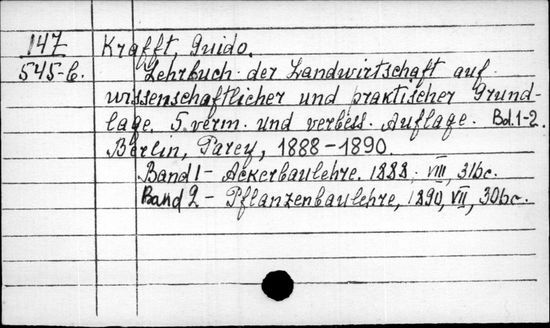 147 Krafft, Guido.
545-6. Lehrbuch der Landwirtschaft auf
wissenschaftlicher und praktischer Grund-
lage. 5. verm. und verbess. Auflage. Bd. 1-2.
Berlin, Parey, 1888-1890.
Band 1 - Ackerbaulehre. 1888. VIII, 316c.
Band 2 - Pflanzenbaulehre, 1890, VII, 306c.